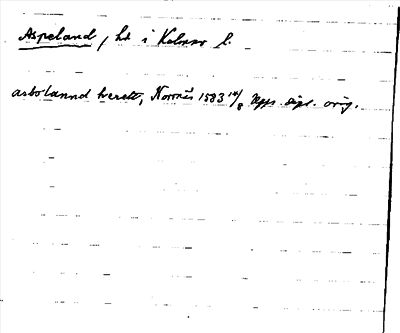 Aspeland, hd i Kalmar l.
asbolannd herett, Norrnäs 1583 14/8 Upps. sigs. orig.